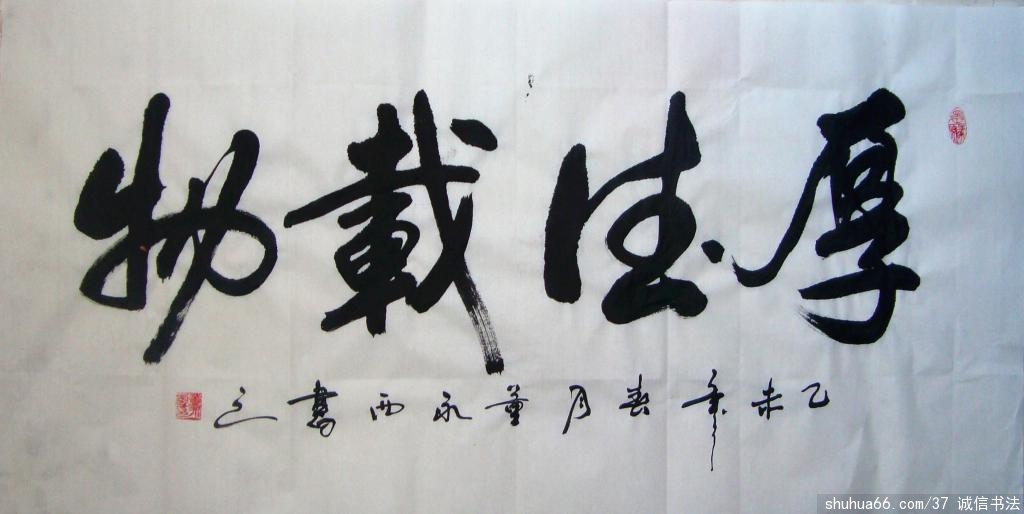 厚德載物
乙未年春月董永西書之
shuhua66.com/37 诚信书法